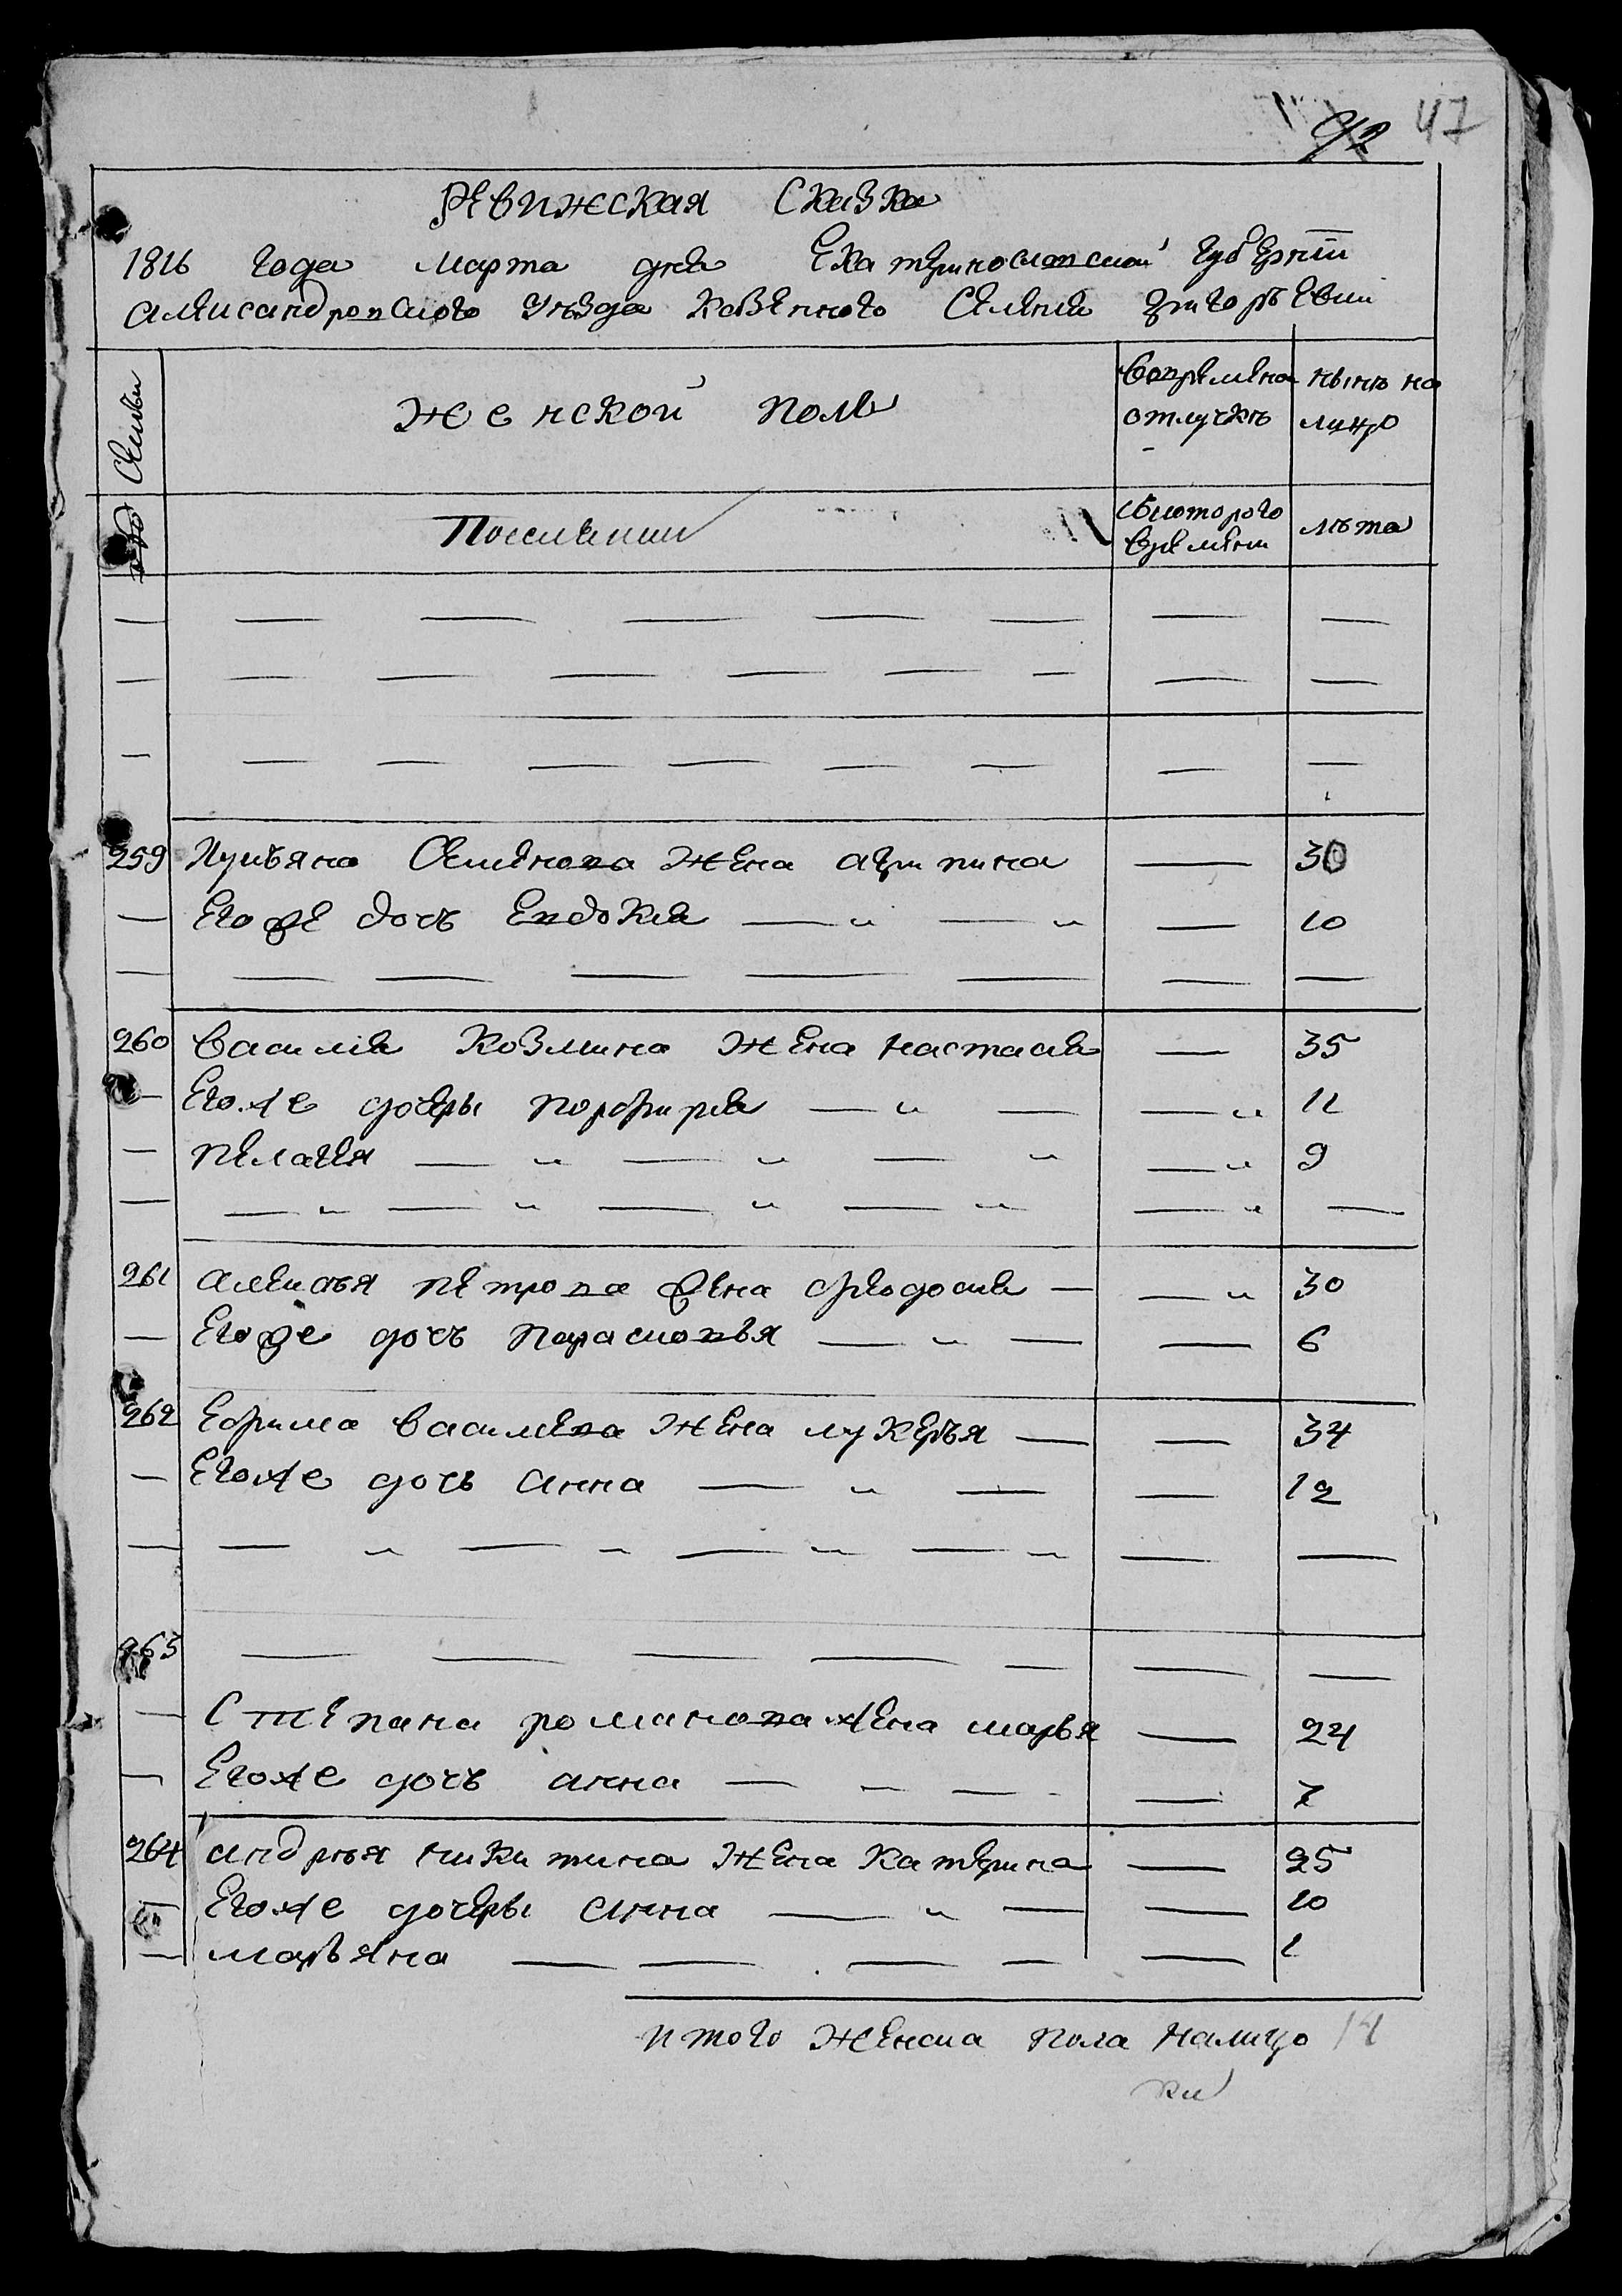 92 47
Ревижская Сказка
1816 года марта дня Екатеринославской губернїи
Александровского уезда Казенного Селения Григорьевки
Семьи
Женской пол
вовремена отлучке
ныне на лицо
Поселянки
с которого времяни
лета
259 Лукьяна Семенова жена агрипина — 30
Его же дочь Евдокия — 10
260 Василия Козмина жена настасия — 35
Его же дочеры порфирия — 11
пелагея — 9
261 алексея петрова жена феодосия — 30
Его же дочь парасковья — 6
262 Ефима василева жена лукерья — 34
Его же дочь анна — 12
263
Степана романова жена марья — 24
Его же дочь анна — 7
264 андрея никитина жена катерина — 25
Его же дочеры анна — 10
марьяна — 1
итого женска пола налицо 14